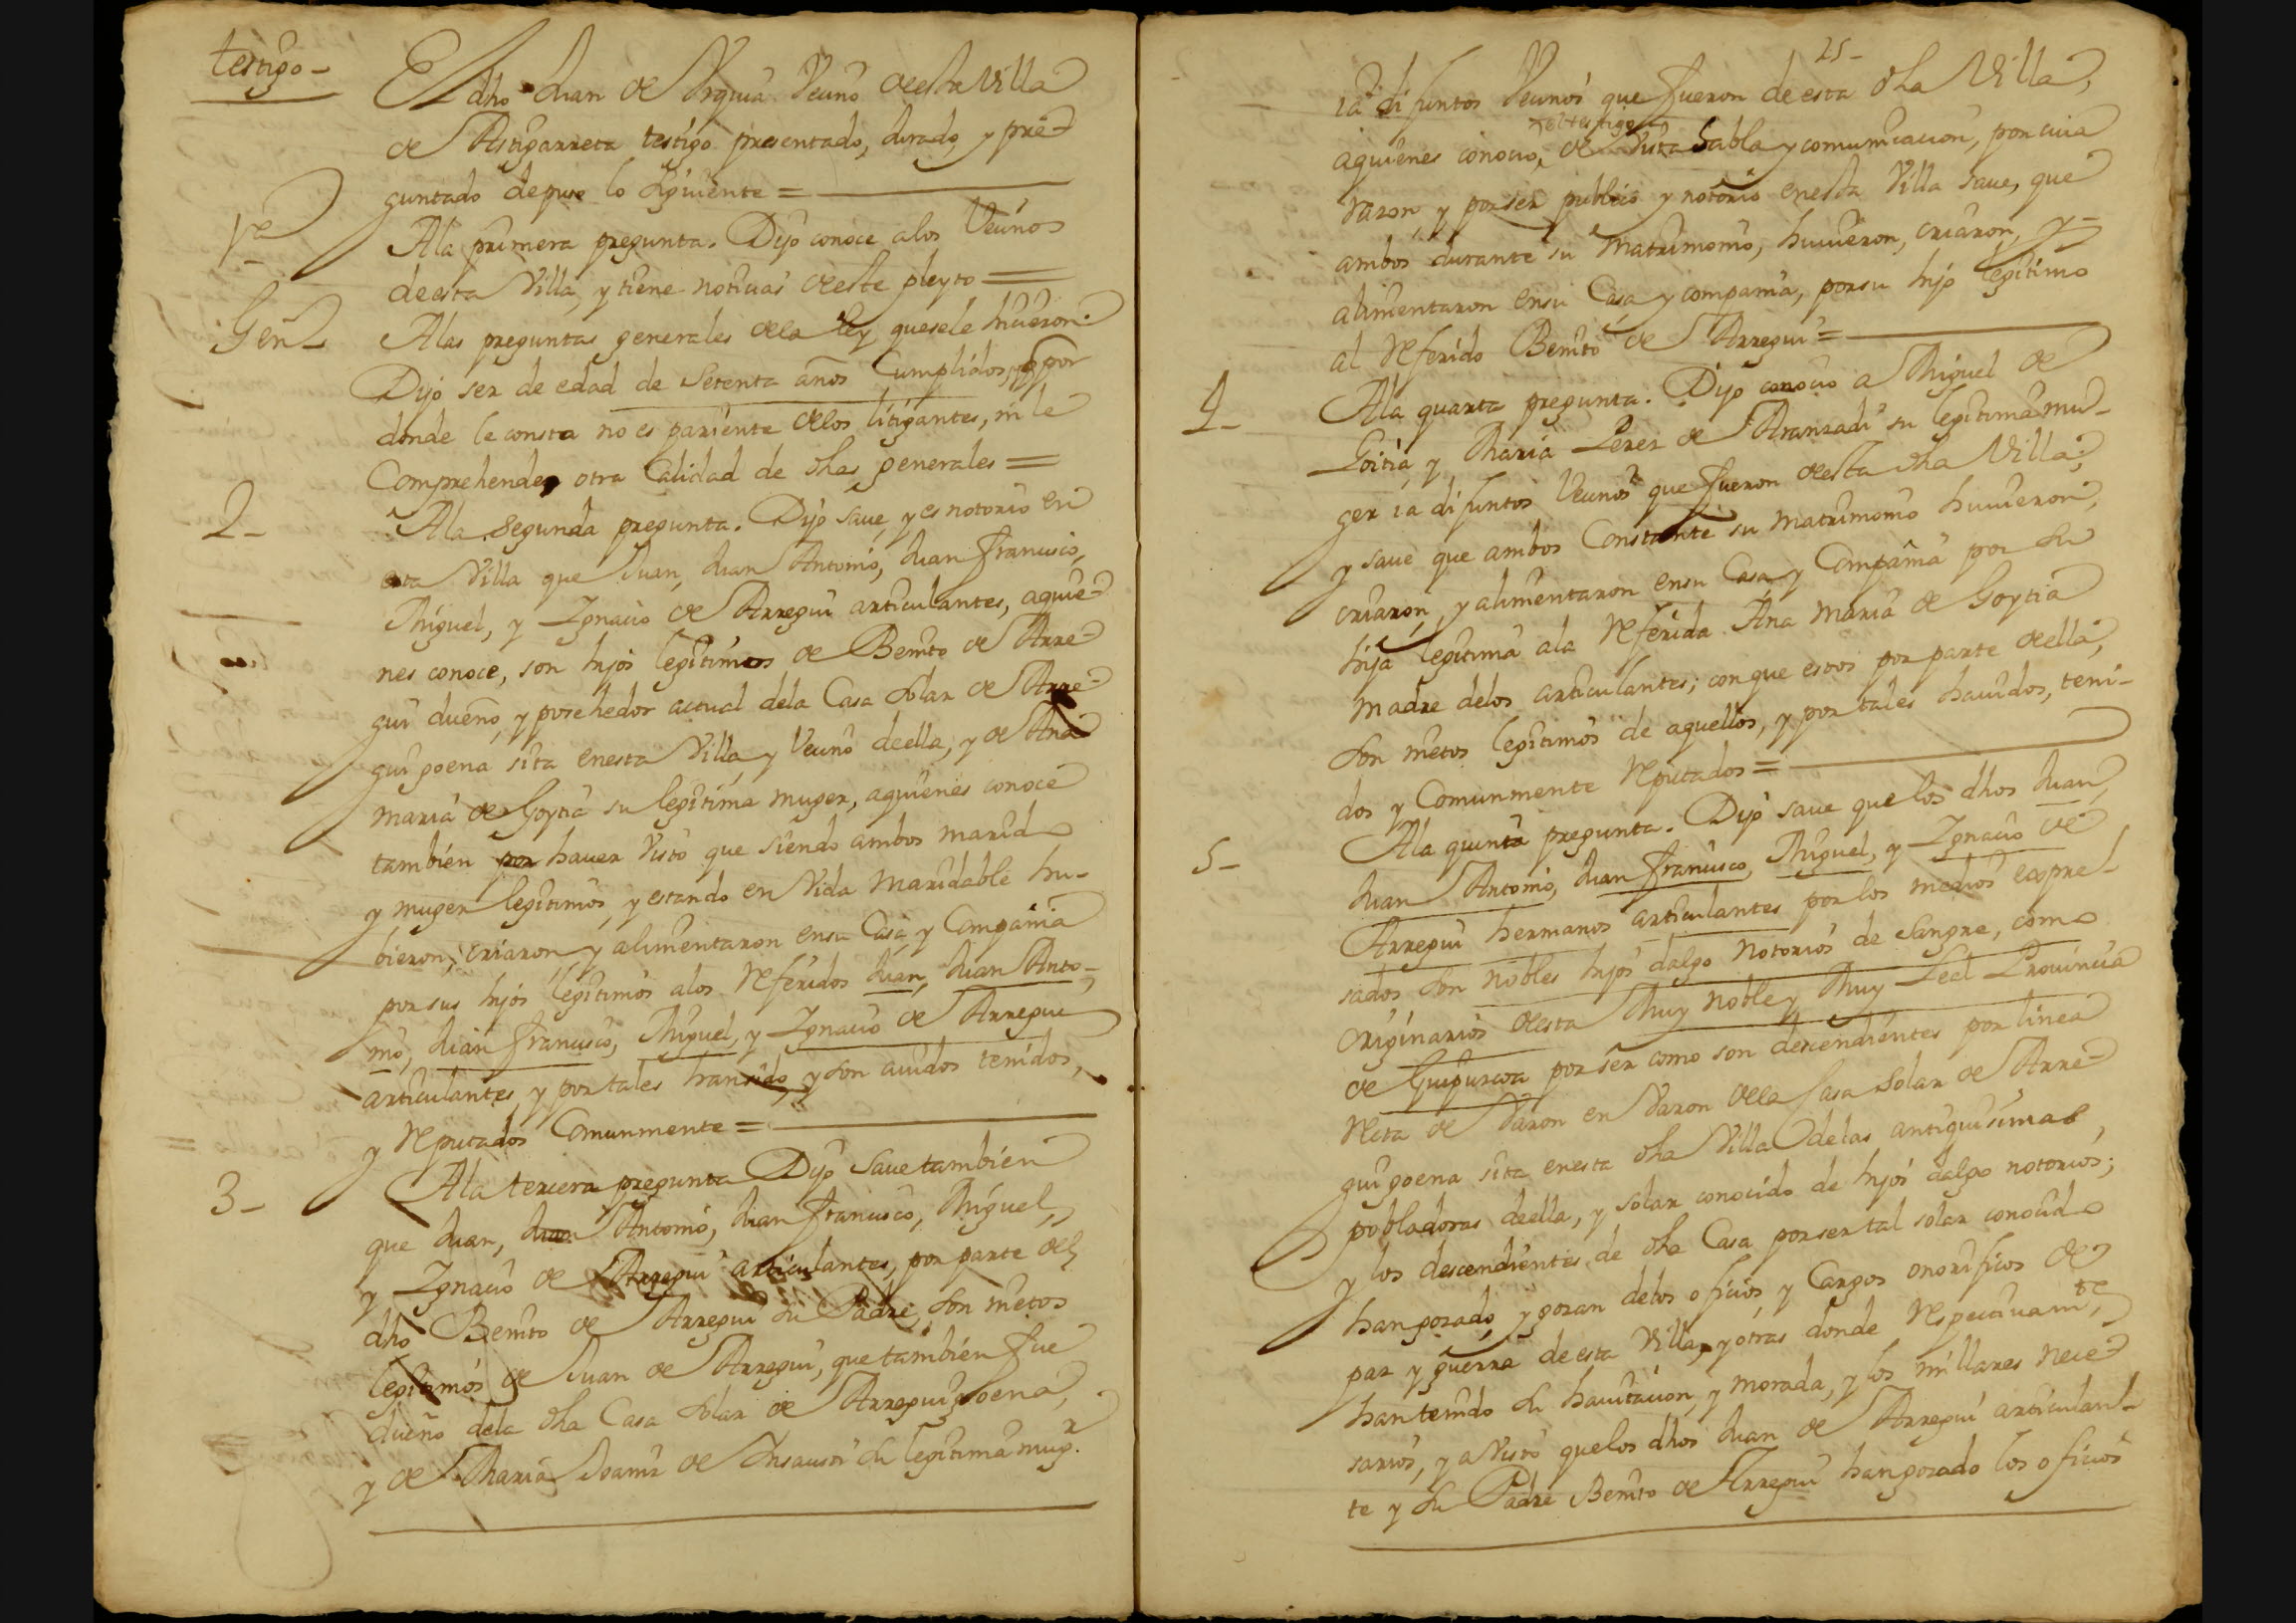 testigo -
El dho Juan de Vrquia Vecino deesta Villa
de Astigarreta testigo presentado, Jurado, y pre=
guntado depuso lo siguiente =
1ª
Ala primera pregunta. Dijo conoce alos Vecinos
deesta Villa, y tiene noticias deeste pleyto =
Gen_s
Alas preguntas generales dela ley quesele hicieron.
Dijo ser de edad de Setenta años Cumplidos, y por
donde le consta no es pariente delos litigantes, ni le
Comprehende otra Calidad de dhas generales =
2_
Ala segunda pregunta. Dijo save, y es notorio en
esta Villa que Juan, Juan Antonio, Juan Francisco,
Miguel, y Ignacio de Arregui articulantes, aquie=
nes conoce, son hijos legitimos de Benito de Arre=
gui dueño, y posehedor actual dela Casa Solar de Arre=
guigoena sita enesta Villa y Vecino deella, y de Ana
Maria de Goytia su legitima muger, aquienes conoce
tambien por haver visto que siendo ambos marido
y muger legitimos, y estando en Vida Maridable hu_
bieron, criaron, y alimentaron ensu Casa, y Compañia
por sus hijos legitimos alos Referidos Juan, Juan Anto_
nio, Juan Francisco, Miguel, y Ignacio de Arregui
articulantes, y por tales han sido, y son auidos tenidos,
y Reputados Comunmente =
3_
Ala tercera pregunta Dijo Save tambien
que Juan, Juan Antonio, Juan Francisco, Miguel,
y Ignacio de Arregui articulantes, por parte del
dho Benito de Arregui su Padre, son nietos
legitimos de Juan de Arregui, que tambien fue
dueño dela dha Casa Solar de Arreguigoena,
y de Maria de Insausti su legitima mugr.
25_
ia difuntos Vecinos que fueron de esta dha Villa,
el testigo
aquienes conocio, de Vista habla y comunicacion, por cuia
razon, y por ser publico y notorio enesta Villa save, que
ambos durante su Matrimonio, huuieron, criaron, y_
alimentaron ensu Casa, y compañia, por su hijo legitimo
al Referido Benito de Arregui =
4_
Ala quarta pregunta. Dijo conocio a Miguel de
Goitia, y Maria Perez de Aranzadi su legitima mu_
ger ia difuntos Vecinos que fueron deesta dha Villa;
y save que ambos Constante su matrimonio huuieron,
criaron, y alimentaron ensu Casa, y Compañia por su
hija legitima ala Referida Ana Maria de Goytia
madre delos articulantes; conque estos por parte deella,
son nietos legitimos de aquellos, y por tales hauidos, teni_
dos y Comunmente Reputados =
5_
Ala quinta pregunta. Dijo save que los dhos Juan,
Juan Antonio, Juan Francisco, Miguel, y Ignacio de
Arregui hermanos articulantes por los medios expre_
sados son nobles hijos dalgo Notorios de sangre, como
originarios desta Muy Noble y Muy Leal Provincia
de Guipuzcoa por ser como son descendientes por linea
Recta de Varon en Varon dela Casa Solar de Arre=
guigoena sita enesta dha Villa delas antiquisimas,
pobladoras deella, y solar conocido de hijos dalgo notorios;
y los descendientes de dha Casa por ser tal solar conocido
han gozado, y gozan delos oficios, y Cargos onorificos de
paz y guerra de esta Villa, y otras donde Respectiuamte,
han tenido su hauitacion, y morada, y los millares nece=
sarios, y a Visto que los dhos Juan de Arregui articulan_
te y su Padre Benito de Arregui han gozado los oficios